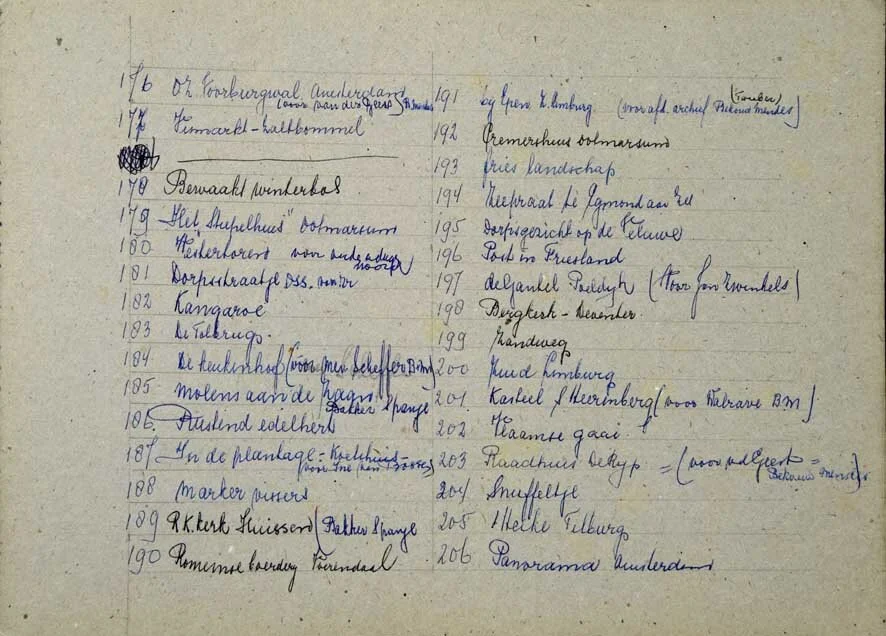 176 O.Z. Voorburgwal Amsterdam
(voor van der Geest) B. Mendes
177 Vismarkt - Zaltbommel
178 Bewaakt winterbos
179 "Het Stupelhuis" Ootmarsum
180 Westertoren voor
181 Dorpsstraatje Oss.
182 Kangaroe
183 De Tolbrug.
184 De Keukenhof (voor Mev Scheffer B.M)
185 Molens aan de Zaan
Bakker Spanje
186 Rustend edelhert
187 In de plantage - Koetshuis -
188 Marker vissers
189 R.K. Kerk Huissen (Bakker Spanje
190 Romeinse boerdery Voerendaal
191 by Epen Z. Limburg. (voor afd. archief Bekouw Mendes)
192 Cremershuis Ootmarsum
193 fries landschap
194 Zeepraat te Egmond aan Zee
195 Dorpsgezicht op de Veluwe
196 Post in Friesland
197 de Gantel Poeldyk (Voor Jan Zwinkels)
198 Bergkerk - Deventer.
199 Zandweg
200 Zuid Limburg
201 Kasteel S Heerenberg (voor Walrave B M)
202 Vlaamse gaai.
203 Raadhuis De Ryp = (voor v d Geest =
Bekouw Mendes)
204 Snuffeltje
205 't Heike Tilburg
206 Panorama Amsterdam